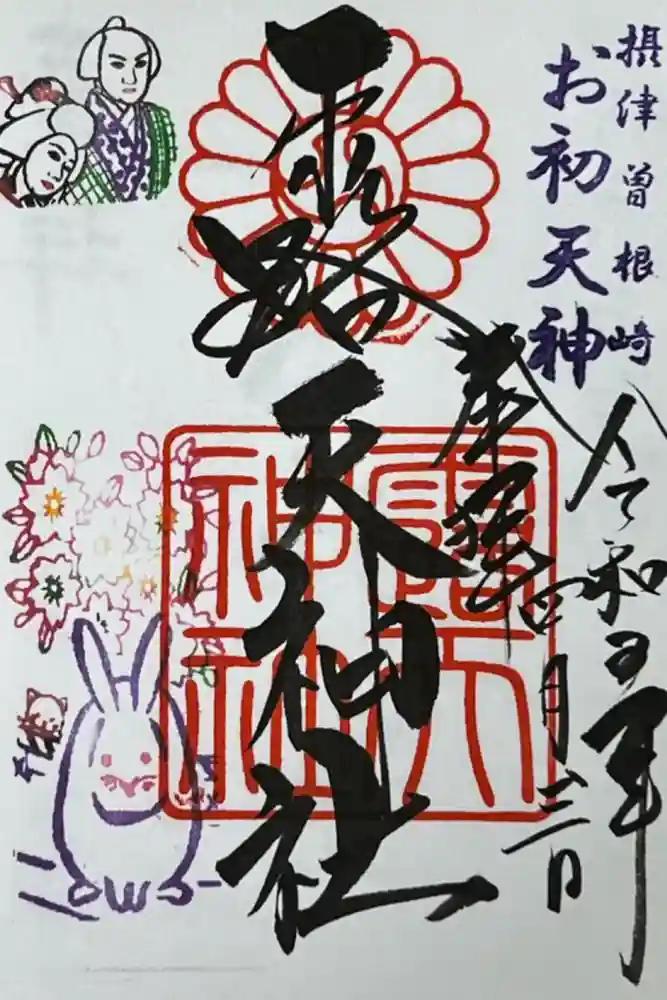 摂津曽根崎
お初天神
令和五年
四月三日
奉拝
露天神社
露天神社